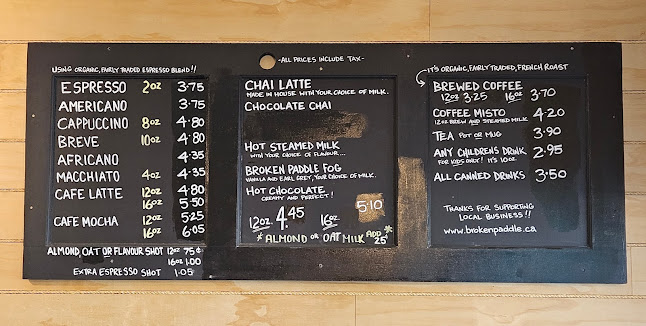 -ALL PRICES INCLUDE TAX-
USING ORGANIC, FAIRLY TRADED ESPRESSO BLEND!!
ESPRESSO 2oz 3.75
AMERICANO 3.75
CAPPUCCINO 8oz 4.80
BREVE 10oz 4.80
AFRICANO 4.35
MACCHIATO 4oz 4.35
CAFE LATTE 12oz 4.80
16oz 5.50
CAFE MOCHA 12oz 5.25
16oz 6.05
ALMOND, OAT OR FLAVOUR SHOT 12oz 75¢
16oz 1.00
EXTRA ESPRESSO SHOT 1.05
CHAI LATTE
MADE IN HOUSE WITH YOUR CHOICE OF MILK.
CHOCOLATE CHAI
HOT STEAMED MILK
WITH YOUR CHOICE OF FLAVOUR...
BROKEN PADDLE FOG
VANILLA AND EARL GREY, YOUR CHOICE OF MILK.
HOT CHOCOLATE
CREAMY AND PERFECT!
12oz 4.45 16oz 5.10
*ALMOND OR OAT MILK ADD 25¢*
IT'S ORGANIC, FAIRLY TRADED, FRENCH ROAST
BREWED COFFEE
12oz 3.25 16oz 3.70
COFFEE MISTO 4.20
12oz BREW AND STEAMED MILK
TEA POT OR MUG 3.90
ANY CHILDRENS DRINK 2.95
FOR KIDS ONLY! IT'S 10oz
ALL CANNED DRINKS 3.50
THANKS FOR SUPPORTING
LOCAL BUSINESS!!
www.brokenpaddle.ca